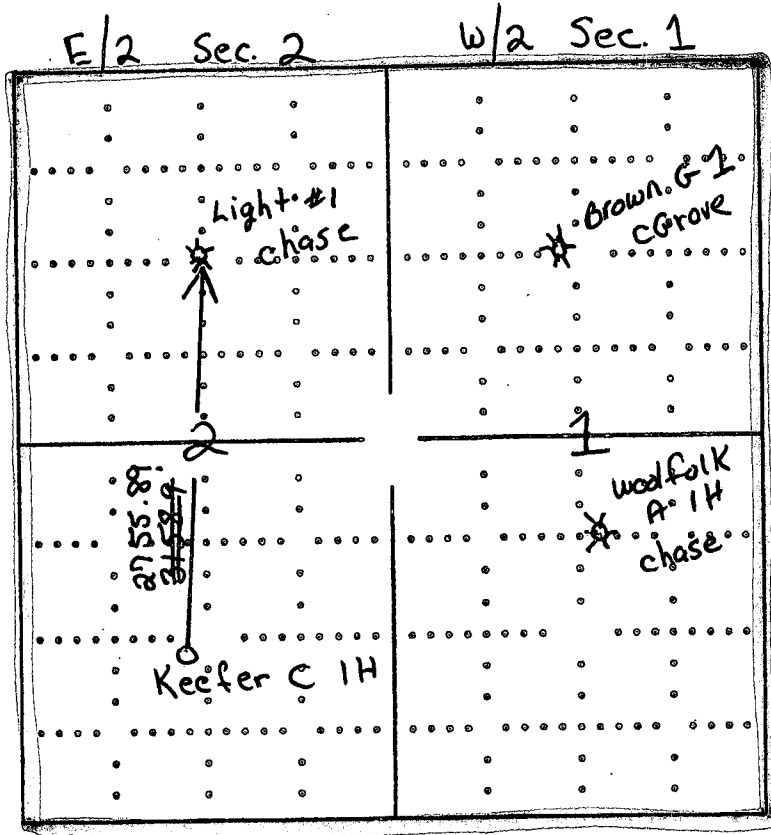 E/2 Sec. 2
W/2 Sec. 1
Light #1
chase
Brown. G 1
CGrove
2
1
2755.89'
3158.9
woodfolk
A. 1H
chase
Keefer C 1H